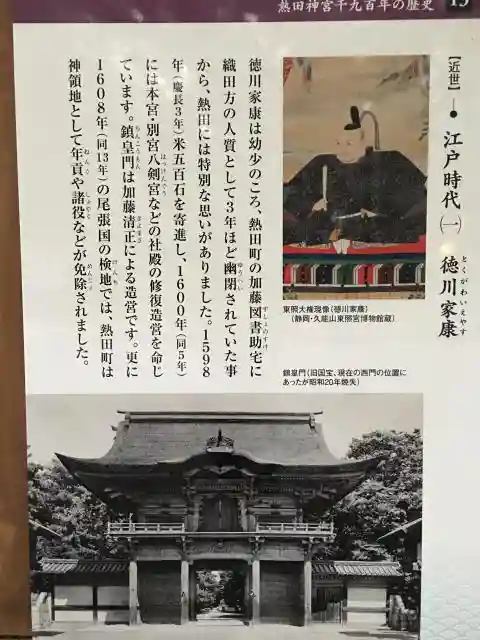 熱田神宮千九百年の歴史 15
【近世】
江戸時代(一) 徳川家康
とくがわいえやす
徳川家康は幼少のころ、熱田町の加藤図書助宅に
ずしょのすけ
織田方の人質として3年ほど幽閉されていた事
ゆうへい
から、熱田には特別な思いがありました。1598
年(慶長3年)米五百石を寄進し、1600年(同5年)
には本宮・別宮八剣宮などの社殿の修復造営を命じ
はっけんぐう
ています。鎮皇門は加藤清正による造営です。更に
ちんこうもん
きよまさ
1608年(同13年)の尾張国の検地では、熱田町は
けんち
神領地として年貢や諸役などが免除されました。
ねんぐ
しょやく
めんじょ
東照大権現像(徳川家康)
(静岡・久能山東照宮博物館蔵)
鎮皇門(旧国宝、現在の西門の位置に
あったが昭和20年焼失)